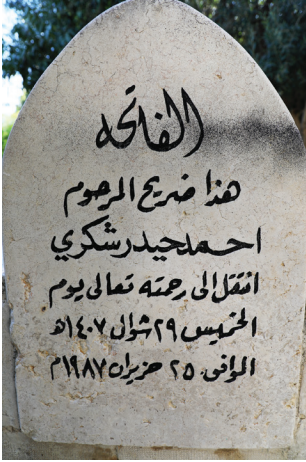 الفاتحه
هذا ضريح المرحوم
احمد حيدر شكري
انتقل الى رحمته تعالى يوم
الخميس ٢٩ شوال ١٤٠٧ه
الموافق ٢٥ حزيران ١٩٨٧م